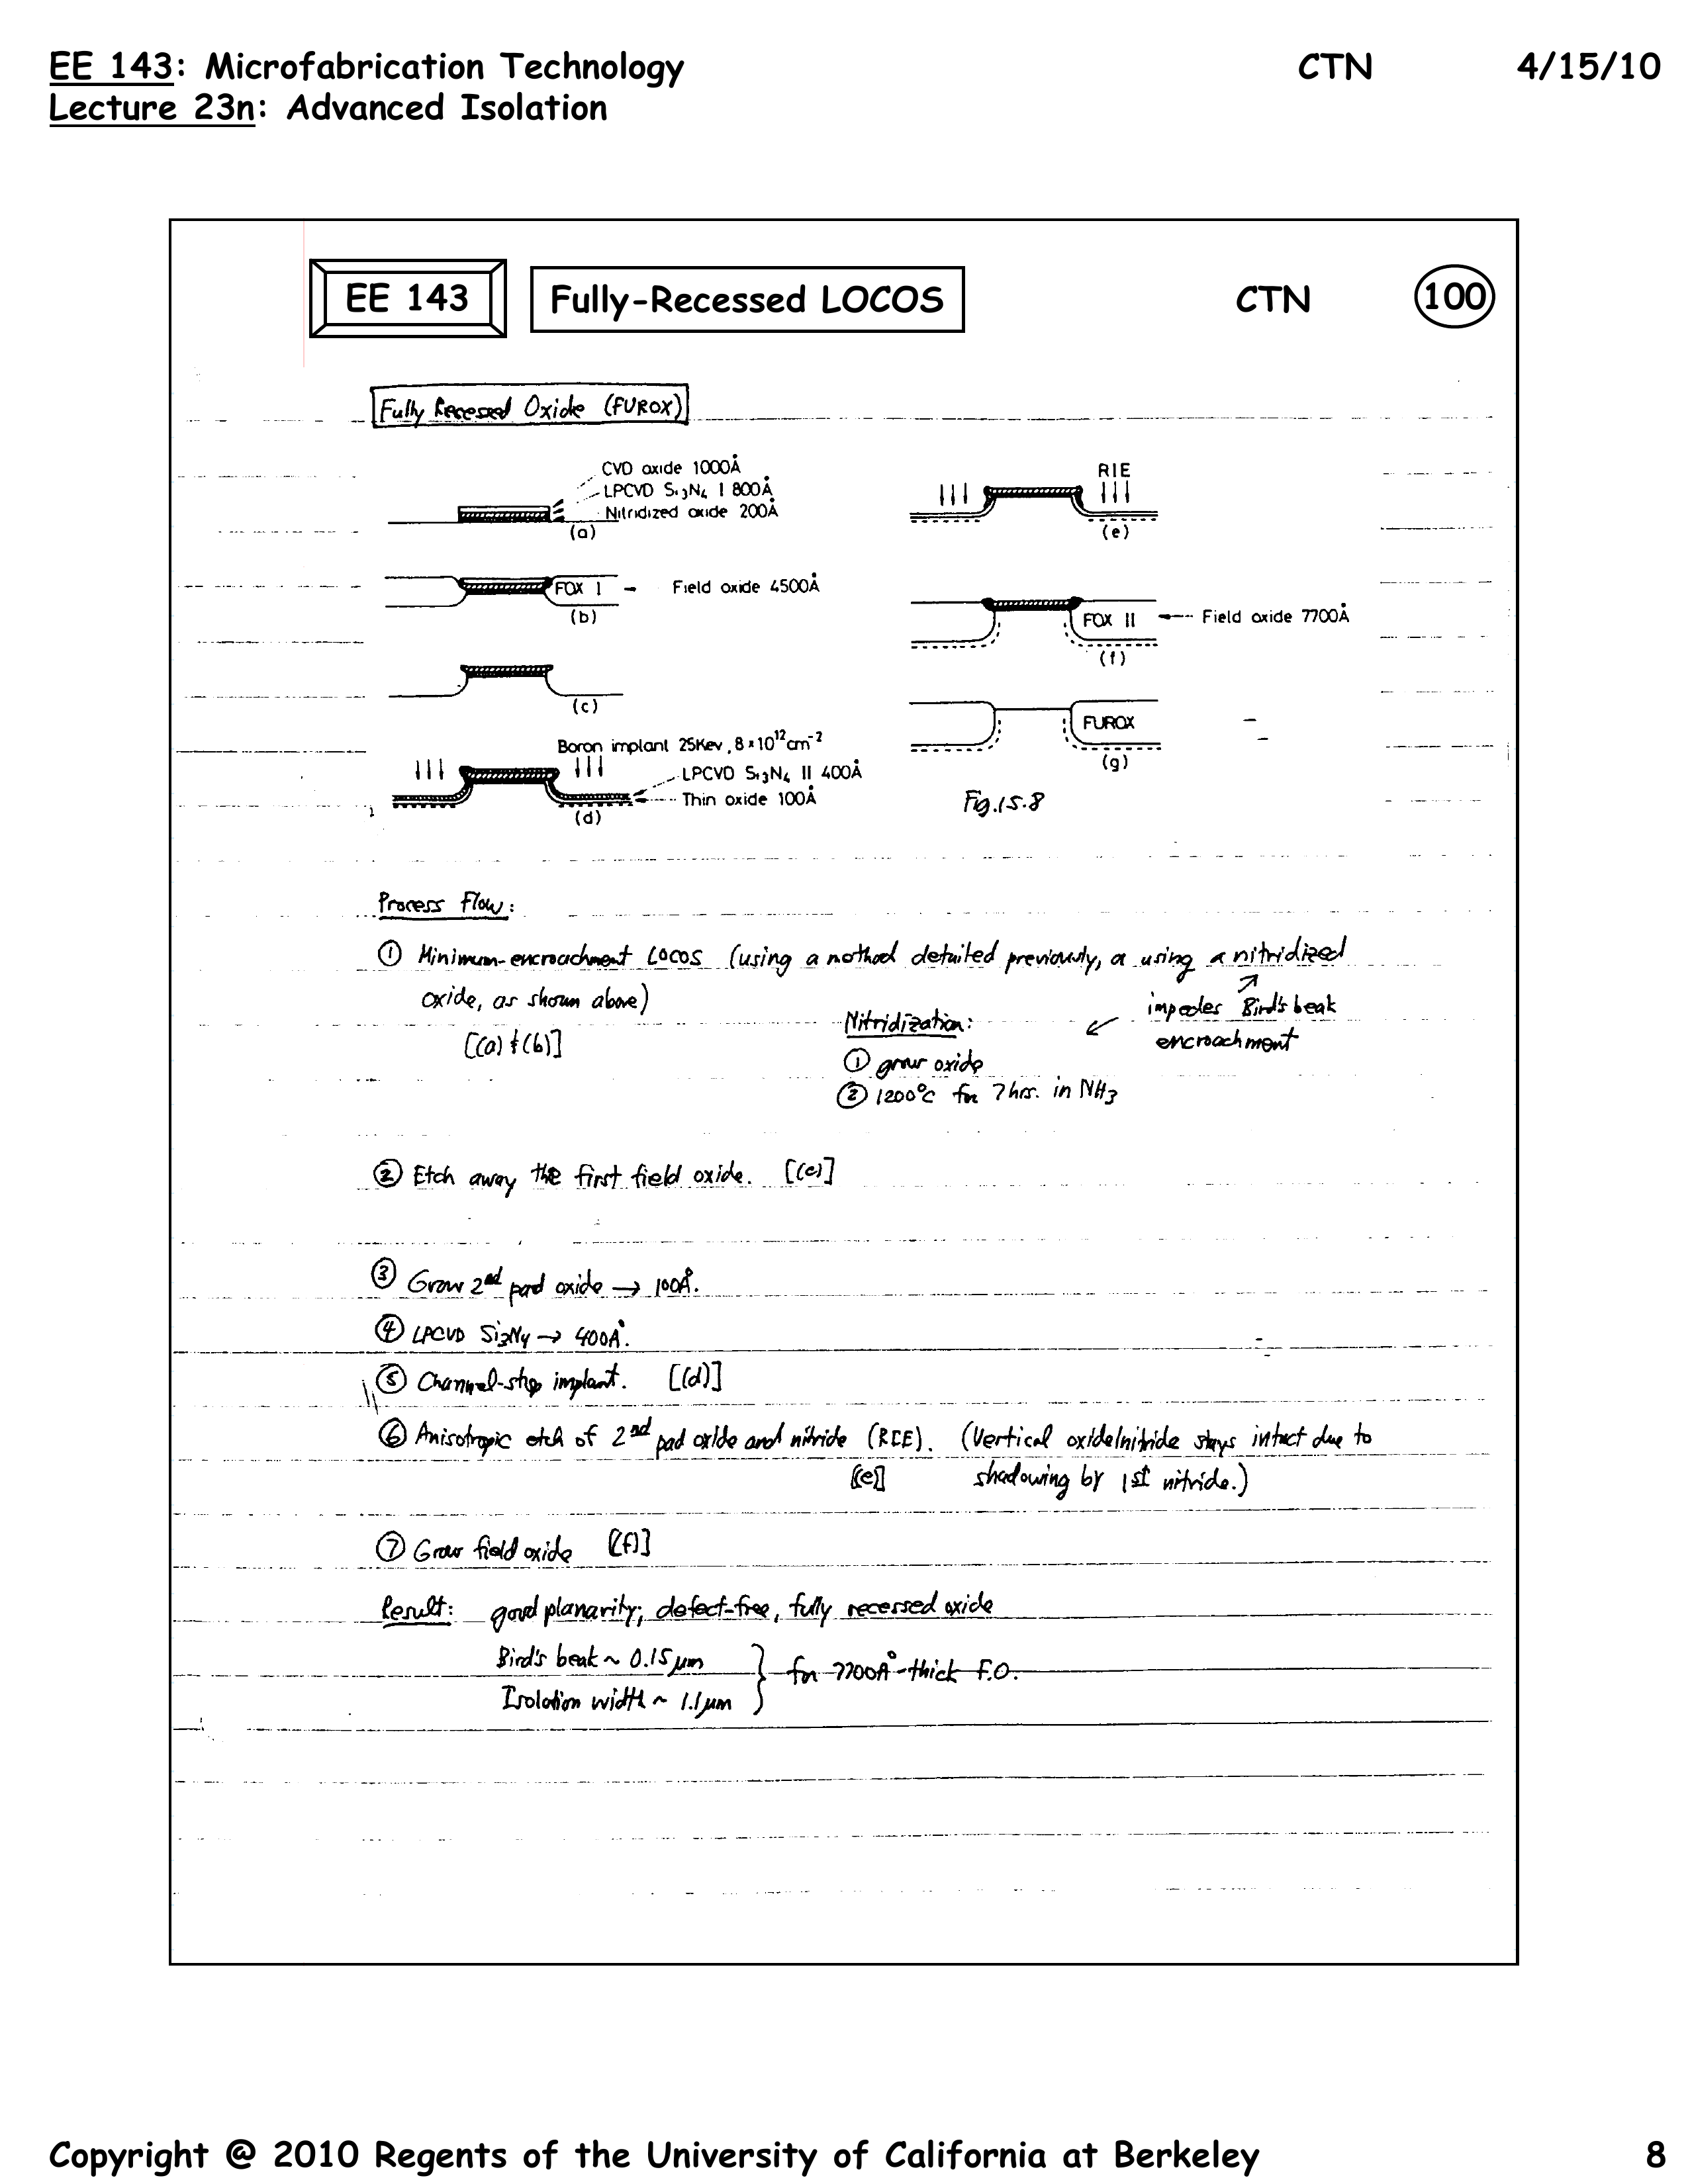 EE 143: Microfabrication Technology CTN 4/15/10
Lecture 23n: Advanced Isolation
EE 143 Fully-Recessed LOCOS CTN 100
Fully Recessed Oxide (FUROX)
CVD oxide 1000Å
LPCVD Si3N4 I 800Å
Nitridized oxide 200Å
(a)
FOX I Field oxide 4500Å
(b)
(c)
Boron implant 25Kev, 8×10^12 cm^-2
LPCVD Si3N4 II 400Å
Thin oxide 100Å
(d)
RIE
(e)
FOX II Field oxide 7700Å
(f)
FUROX
(g)
Fig. 15.8
Process Flow:
① Minimum-encroachment LOCOS (using a method detailed previously, or using a nitridized
oxide, as shown above)
[(a) & (b)]
impedes Bird's beak
encroachment
Nitridization:
① grow oxide
② 1200°C for 7 hrs. in NH3
② Etch away the first field oxide. [(c)]
③ Grow 2nd pad oxide → 100Å.
④ LPCVD Si3N4 → 400Å.
⑤ Channel-stop implant. [(d)]
⑥ Anisotropic etch of 2nd pad oxide and nitride (RIE). (Vertical oxide/nitride stays intact due to
[(e)] shadowing by 1st nitride.)
⑦ Grow field oxide [(f)]
Result: good planarity; defect-free, fully recessed oxide
Bird's beak ~ 0.15 μm
Isolation width ~ 1.1 μm } for 7700Å-thick F.O.
Copyright @ 2010 Regents of the University of California at Berkeley 8